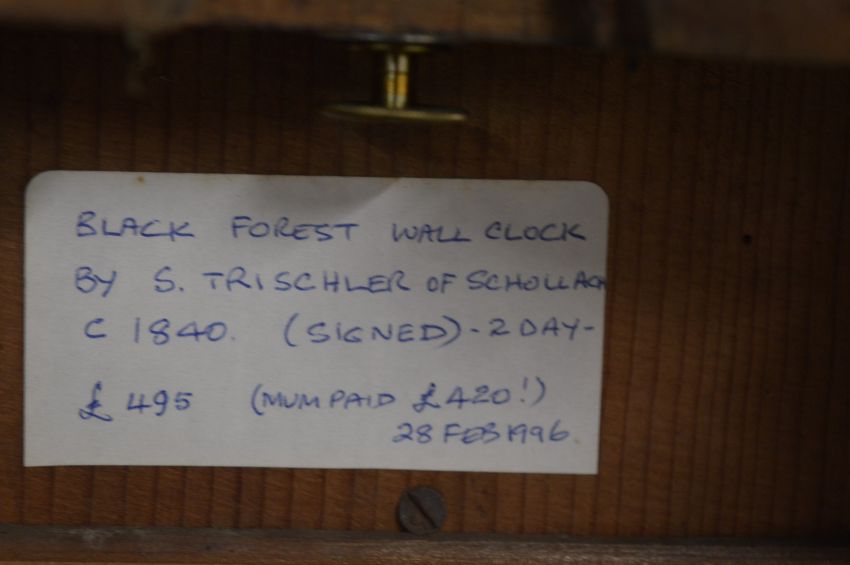 BLACK FOREST WALL CLOCK
BY S. TRISCHLER OF SCHOLLACH
C 1840. (SIGNED) - 2 DAY -
£ 495 (MUM PAID £420!)
28 FEB 1996.